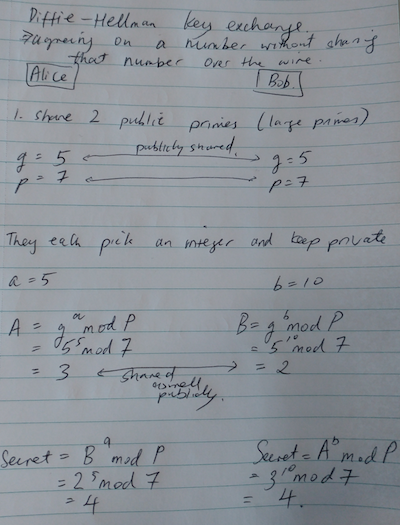 Diffie-Hellman key exchange.
→agreeing on a number without sharing
that number over the wire.
Alice Bob.
1. share 2 public primes (large primes)
g = 5 publicly shared. g = 5
p = 7 p = 7
They each pick an integer and keep private
a = 5 b = 10
A = g^a mod P B = g^b mod P
= 5^5 mod 7 = 5^10 mod 7
= 3 shared = 2
publicly.
Secret = B^a mod P Secret = A^b mod P
= 2^5 mod 7 = 3^10 mod 7
= 4 = 4.